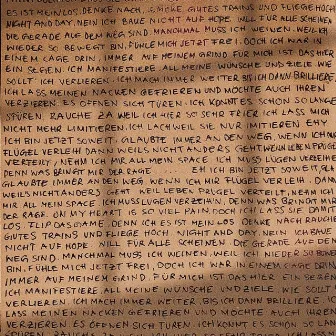 ES IST MEIN LOS, DENKE NACH, SMOKE GUTES TRAINS UND FLIEGE HOCH,
NIGHT AND DAY, NEIN ICH BAUE NICHT AUF HOPE WILL FÜR ALLE SCHEINEN,
DIE GERADE AUF DEM WEG SIND. MANCHMAL MUSS ICH WEINEN, WEIL ICH
WIEDER SO BEWEGT BIN. FÜHLE MICH JETZT FREI, DOCH ICH WAR IN
EINEM CAGE DRIN, IMMER AUF MEINEM GRIND. FÜR MICH IST DAS HIER
EIN SEGEN. ICH MANIFESTIERE ALL MEINE WÜNSCHE UND ZIELE WIE
SOLLT ICH VERLIEREN. ICH MACH IMMER WEITER, BIS ICH DANN BRILLIERE.
ICH LASS MEINEN NACKEN GEFRIEREN UND MÖCHTE AUCH IHREN
VERZIEREN. ES ÖFFNEN SICH TÜREN. ICH KONNT ES SCHON SO LANG
SPÜREN. RAUCHE ZA WEIL ICH HIER SO SEHR FREI. ICH LASS MICH
NICHT MEHR LIMITIEREN. ICH LACH WEIL SIE NUR IMITIEREN EHY
ICH BIN JETZT SOWEIT. GLAUBTE IMMER AN DEN WEG. WENN ICH
FLÜGEL VERLEIH DANN WEIL'S NICHT ANDERS GEHT. WEIN LEBEN PRÜGEL
VERTEILT, NEHM ICH MIR ALL MEIN SPACE. ICH MUSS LÜGEN VERZEIHEN
DENN WAS BRINGT MIR DER RAGE EH ICH BIN JETZT SOWEIT,
GLAUBTE IMMER AN DEN WEG. WENN ICH MIR FLÜGEL VERLEIH. DANN
WEIL'S NICHT ANDERS GEHT. WEIL LEBEN PRÜGEL VERTEILT, NEHM ICH
MIR ALL MEIN SPACE ICH MUSS LÜGEN VERZEIH'N, DENN WAS BRINGT MIR
DER RAGE. ON MY HEART IS SO VIEL PAIN DOCH ICH LASS SIE DAMIT
LOS. FLIP DAS GAME. DENN ICH ES IST MEIN LOS. DENKE NACH, SMOKE
GUTES TRAINS UND FLIEGE HÖCH. NIGHT AND DAY, NEIN ICH BAUE
NICHT AUF HOPE WILL FÜR ALLE SCHEINEN. DIE GERADE AUF DEM
WEG SIND. MANCHMAL MUSS ICH WEINEN. WEIL ICH WIEDER SO BEWEGT
BIN. FÜHLE MICH JETZT FREI, DOCH ICH WAR IN EINEM CAGE DRIN,
IMMER AUF MEINEM GRIND. FÜR MICH IST DAS HIER EIN SEGEN
ICH MANIFESTIERE ALL MEINE WÜNSCHE UND ZIELE. WIE SOLLT ICH
VERLIEREN. ICH MACH IMMER WEITER, BIS ICH DANN BRILLIERE. ICH
LASS MEINEN NACKEN GEFRIEREN UND MÖCHTE AUCH IHREN
VERZIEREN. ES ÖFFNEN SICH TÜREN. ICH KONNT ES SCHON SO LANG